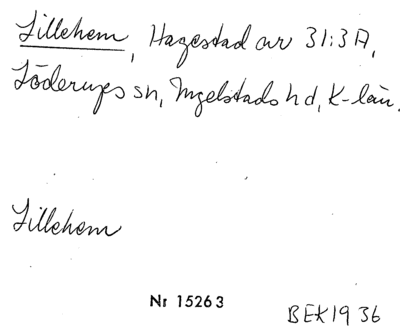 Lillehem, Hagestad avr 31:3A,
Löderups sn, Ingelstads hd, K-län.
Lillehem
Nr 15263
BEK 1936